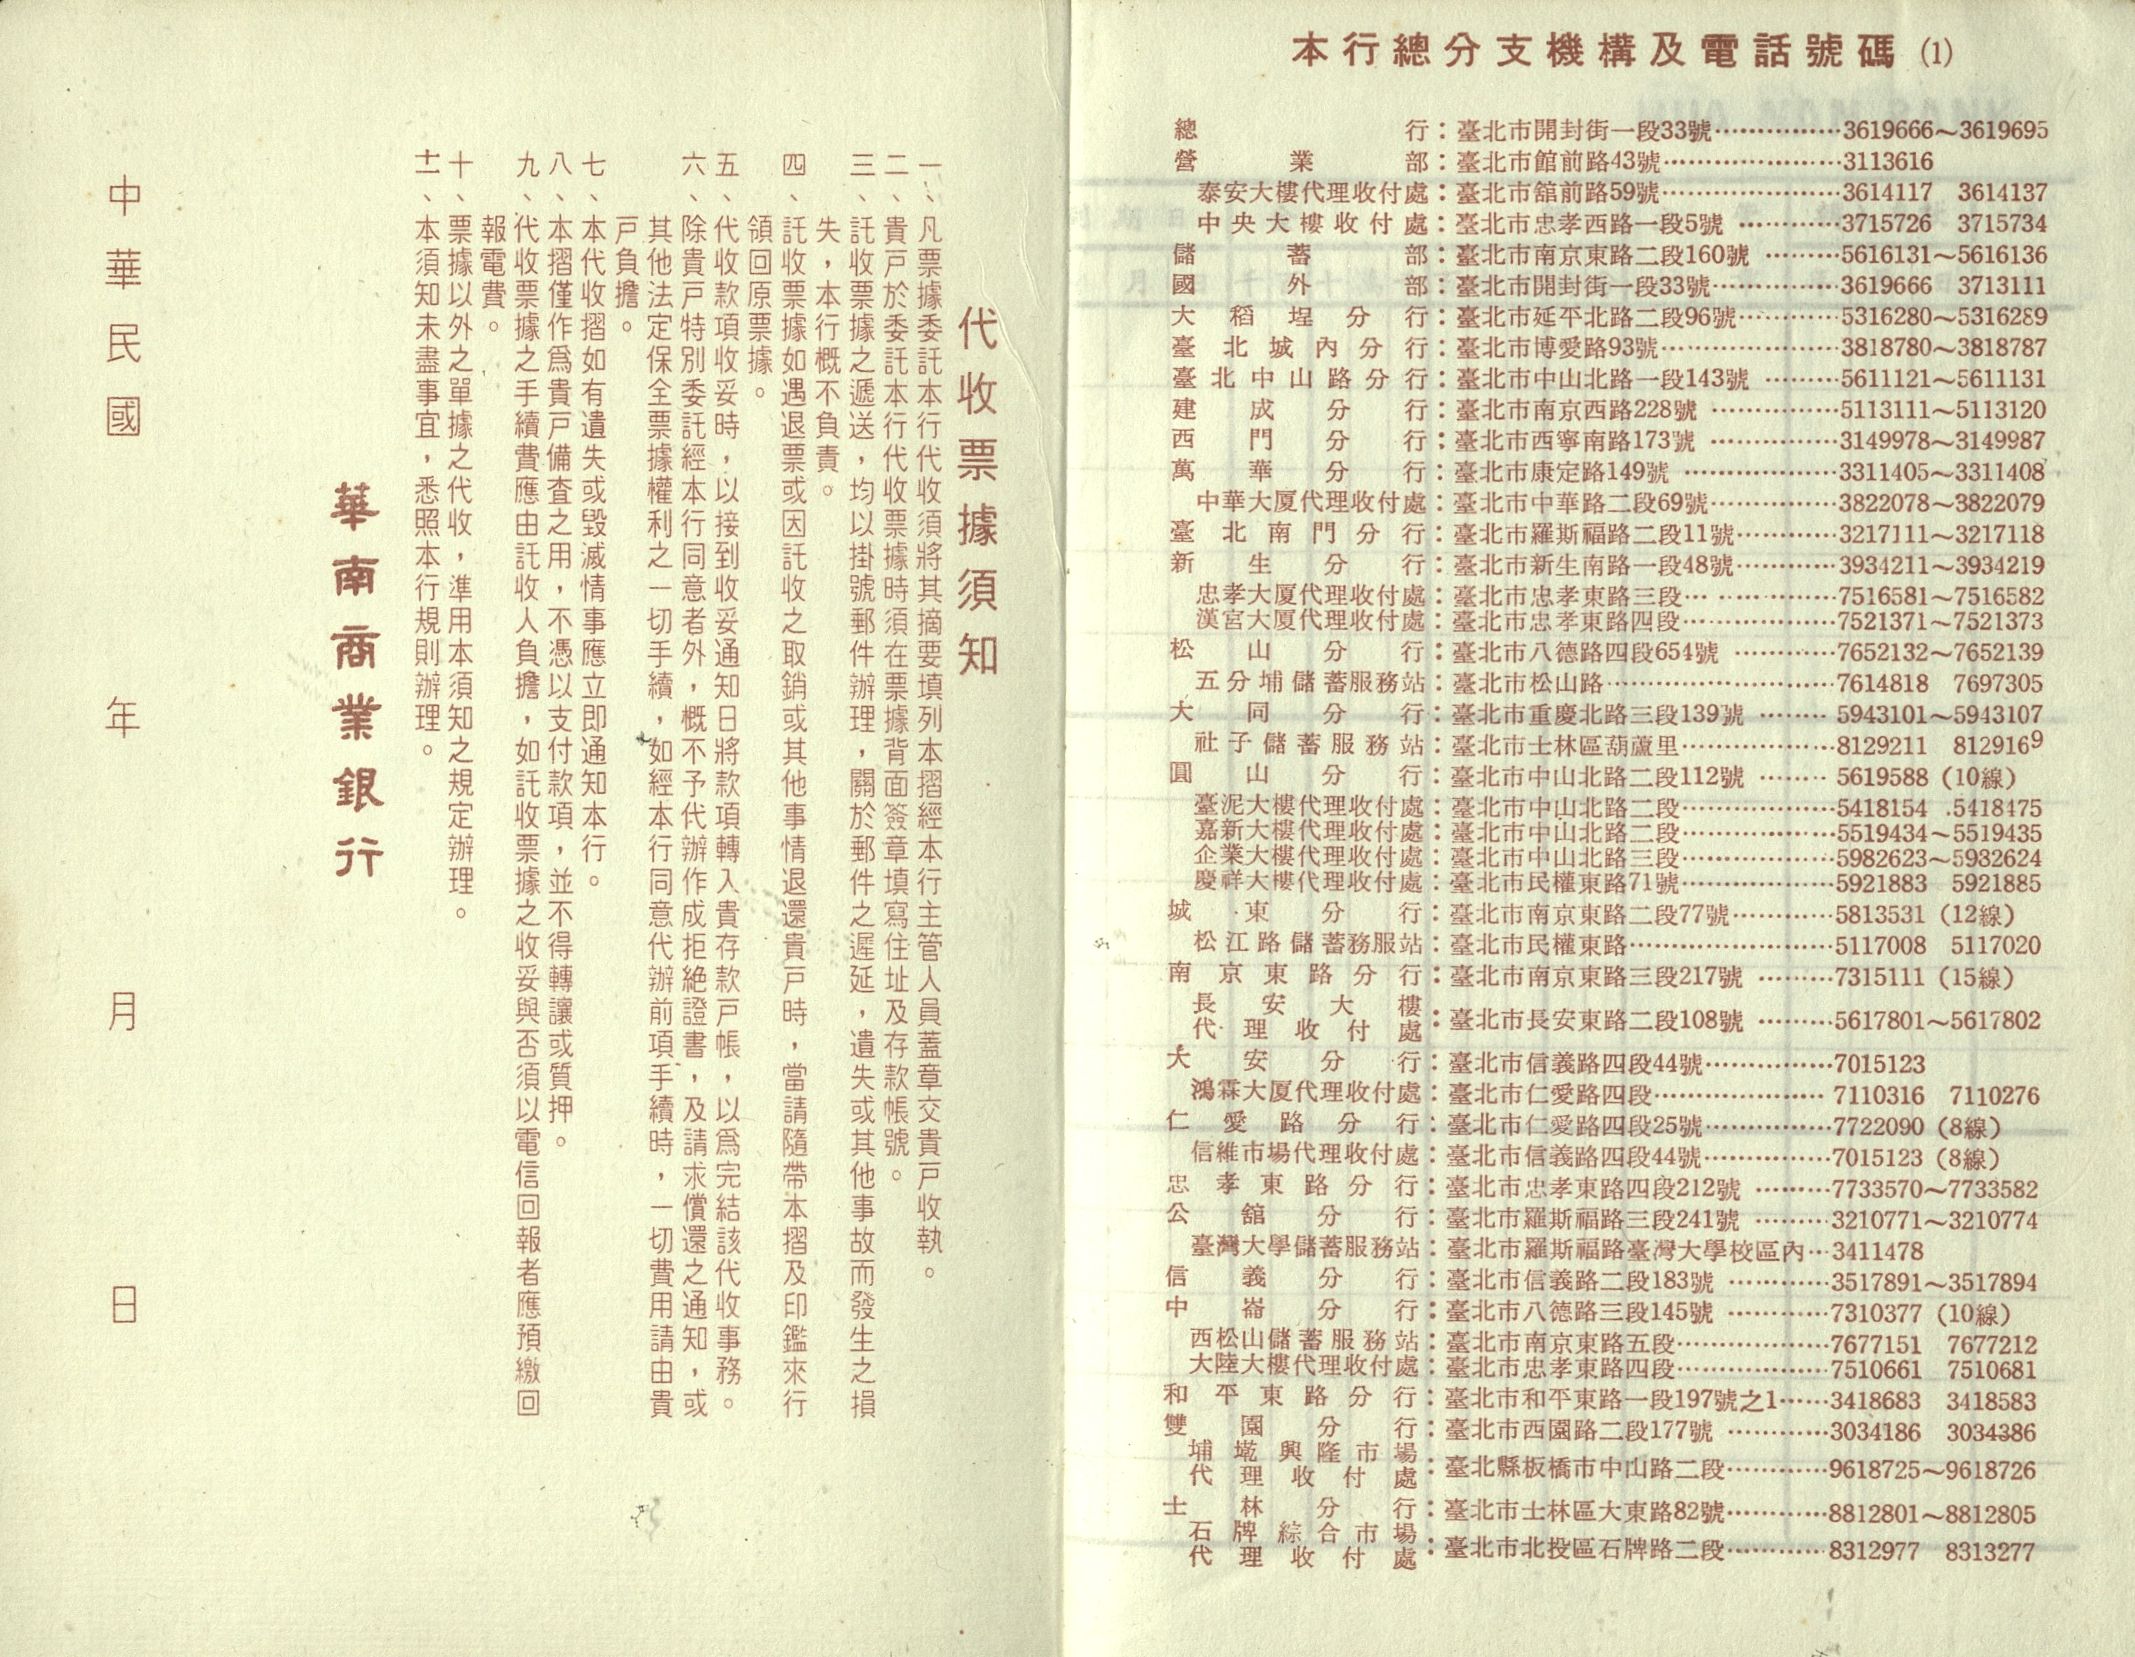 代收票據須知
一、凡票據委託本行代收須將其摘要填列本摺經本行主管人員蓋章交貴戶收執。
二、貴戶於委託本行代收票據時須在票據背面簽章填寫住址及存款帳號。
三、託收票據之遞送，均以掛號郵件辦理，關於郵件之遲延，遺失或其他事故而發生之損
失，本行概不負責。
四、託收票據如遇退票或因託收之取銷或其他事情退還貴戶時，當請隨帶本摺及印鑑來行
領回原票據。
五、代收款項收妥時，以接到收妥通知日將款項轉入貴存款戶帳，以爲完結該代收事務。
六、除貴戶特別委託經本行同意者外，概不予代辦作成拒絶證書，及請求償還之通知，或
其他法定保全票據權利之一切手續，如經本行同意代辦前項手續時，一切費用請由貴
戶負擔。
七、本代收摺如有遺失或毀滅情事應立即通知本行。
八、本摺僅作爲貴戶備查之用，不憑以支付款項，並不得轉讓或質押。
九、代收票據之手續費應由託收人負擔，如託收票據之收妥與否須以電信回報者應預繳回
報電費。
十、票據以外之單據之代收，準用本須知之規定辦理。
十一、本須知未盡事宜，悉照本行規則辦理。
華南商業銀行
中華民國 年 月 日
本行總分支機構及電話號碼 (1)
總行：臺北市開封街一段33號……………3619666～3619695
營業部：臺北市館前路43號…………………3113616
泰安大樓代理收付處：臺北市舘前路59號…………………3614117 3614137
中央大樓收付處：臺北市忠孝西路一段5號…………3715726 3715734
儲蓄部：臺北市南京東路二段160號………5616131～5616136
國外部：臺北市開封街一段33號……………3619666 3713111
大稻埕分行：臺北市延平北路二段96號…………5316280～5316289
臺北城內分行：臺北市博愛路93號…………………3818780～3818787
臺北中山路分行：臺北市中山北路一段143號………5611121～5611131
建成分行：臺北市南京西路228號……………5113111～5113120
西門分行：臺北市西寧南路173號……………3149978～3149987
萬華分行：臺北市康定路149號………………3311405～3311408
中華大厦代理收付處：臺北市中華路二段69號……………3822078～3822079
臺北南門分行：臺北市羅斯福路二段11號…………3217111～3217118
新生分行：臺北市新生南路一段48號…………3934211～3934219
忠孝大厦代理收付處：臺北市忠孝東路三段………………7516581～7516582
漢宮大厦代理收付處：臺北市忠孝東路四段………………7521371～7521373
松山分行：臺北市八德路四段654號…………7652132～7652139
五分埔儲蓄服務站：臺北市松山路………………………7614818 7697305
大同分行：臺北市重慶北路三段139號………5943101～5943107
社子儲蓄服務站：臺北市士林區葫蘆里………………8129211 8129169
圓山分行：臺北市中山北路二段112號………5619588 (10線)
臺泥大樓代理收付處：臺北市中山北路二段………………5418154 5418475
嘉新大樓代理收付處：臺北市中山北路二段………………5519434～5519435
企業大樓代理收付處：臺北市中山北路三段………………5982623～5982624
慶祥大樓代理收付處：臺北市民權東路71號………………5921883 5921885
城東分行：臺北市南京東路二段77號…………5813531 (12線)
松江路儲蓄務服站：臺北市民權東路……………………5117008 5117020
南京東路分行：臺北市南京東路三段217號………7315111 (15線)
長安大樓
代理收付處：臺北市長安東路二段108號………5617801～5617802
大安分行：臺北市信義路四段44號……………7015123
鴻霖大厦代理收付處：臺北市仁愛路四段…………………7110316 7110276
仁愛路分行：臺北市仁愛路四段25號……………7722090 (8線)
信維市場代理收付處：臺北市信義路四段44號……………7015123 (8線)
忠孝東路分行：臺北市忠孝東路四段212號………7733570～7733582
公舘分行：臺北市羅斯福路三段241號………3210771～3210774
臺灣大學儲蓄服務站：臺北市羅斯福路臺灣大學校區內…3411478
信義分行：臺北市信義路二段183號…………3517891～3517894
中崙分行：臺北市八德路三段145號…………7310377 (10線)
西松山儲蓄服務站：臺北市南京東路五段………………7677151 7677212
大陸大樓代理收付處：臺北市忠孝東路四段………………7510661 7510681
和平東路分行：臺北市和平東路一段197號之1……3418683 3418583
雙園分行：臺北市西園路二段177號…………3034186 3034386
埔墘興隆市場
代理收付處：臺北縣板橋市中山路二段…………9618725～9618726
士林分行：臺北市士林區大東路82號…………8812801～8812805
石牌綜合市場
代理收付處：臺北市北投區石牌路二段…………8312977 8313277